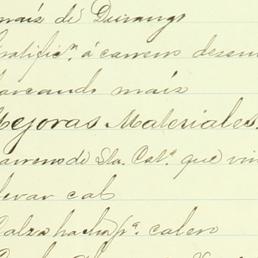 maís de Durango
ratificn. á carrero desem
arcando maís
Mejoras Materiales.
arrero de Sta. Cata. que vin
levar cal
alza hacha pa. calen